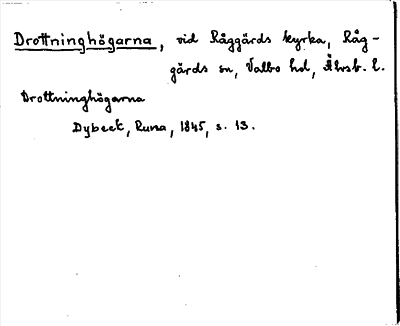 Drottninghögarna, vid Råggärds kyrka, Råg-
gärds sn, Valbo hd, Älvsb. l.
Drottninghögarna
Dybeck, Runa, 1845, s. 13.